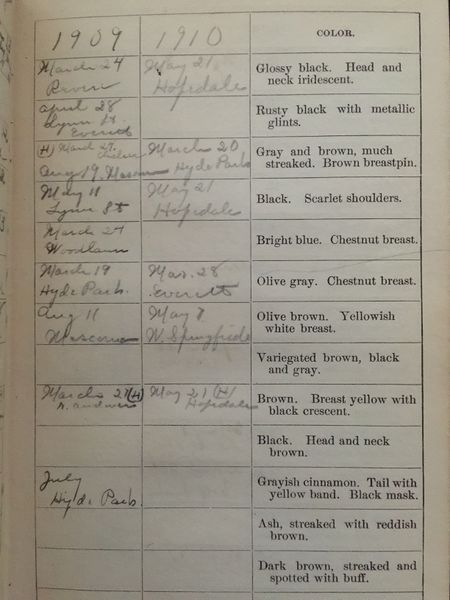 1909 1910 COLOR.
March 24 May 21
Revere Hopedale
Glossy black. Head and
neck iridescent.
April 28
Lynn St.
Everett
Rusty black with metallic
glints.
(H) March 29. March 20
Aug 19. Hyde Park
Gray and brown, much
streaked. Brown breastpin.
May 11 May 21
Lynn St Hopedale
Black. Scarlet shoulders.
March 27
Woodlawn
Bright blue. Chestnut breast.
March 19 Mar. 28
Hyde Park. Everett
Olive gray. Chestnut breast.
Aug 11 May 7
Mascoma W. Springfield
Olive brown. Yellowish
white breast.
Variegated brown, black
and gray.
March 27 (H) May 21 (H)
Hopedale
Brown. Breast yellow with
black crescent.
Black. Head and neck
brown.
July
Hyde Park.
Grayish cinnamon. Tail with
yellow band. Black mask.
Ash, streaked with reddish
brown.
Dark brown, streaked and
spotted with buff.